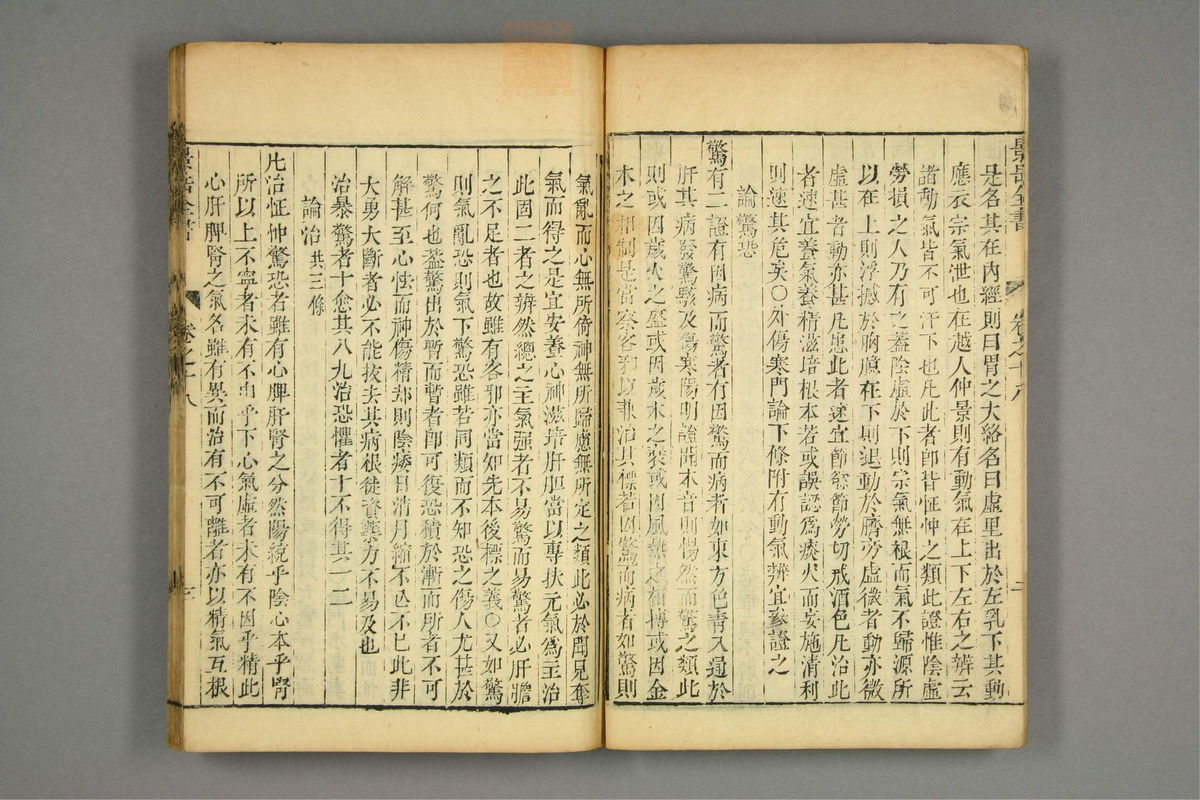 景岳全書
卷之十八
是名其在內經則曰胃之大絡名曰虛里出於左乳下其動
應衣宗氣泄也在越人仲景則有動氣在上下左右之辨云
諸動氣皆不可汗下也凡此者即皆怔忡之類此證惟陰虛
勞損之人乃有之蓋陰虛於下則宗氣無根而氣不歸源所
以在上則浮撼於胸臆在下則振動於臍旁虛微者動亦微
虛甚者動亦甚凡患此者速宜節慾節勞切戒酒色凡治此
者速宜養氣養精滋培根本若或誤認爲痰火而妄施清利
則速其危矣〇外傷寒門論下條附有動氣辨宜參證之
論驚恐
驚有二證有因病而驚者有因驚而病者如東方色青入通於
肝其病發驚駭及傷寒陽明證聞木音則惕然而驚之類此
則或因歲火之盛或因歲木之衰或因風熱之相搏或因金
木之相制是當察客邪以兼治其標若因驚而病者如驚則
氣亂而心無所倚神無所歸慮無所定之類此必於聞見奪
氣而得之是宜安養心神滋培肝胆當以專扶元氣爲主治
此固二者之辨然總之主氣強者不易驚而易驚者必肝膽
之不足者也故雖有客邪亦當知先本後標之義〇又如驚
則氣亂恐則氣下驚恐雖若同類而不知恐之傷人尤甚於
驚何也蓋驚出於暫而暫者即可復恐積於漸而所者不可
解甚至心怯而神傷精却則陰痿日消月縮不亡不已此非
大勇大斷者必不能拔去其病根徒資藥力不易及也
治暴驚者十愈其八九治恐懼者十不得其一二
論治 共三條
凡治怔忡驚恐者雖有心脾肝腎之分然陽統乎陰心本乎腎
所以上不寧者未有不由乎下心氣虛者未有不因乎精此
心肝脾腎之氣名雖有異而治有不可離者亦以精氣互根
景岳全書
卷之十八
三